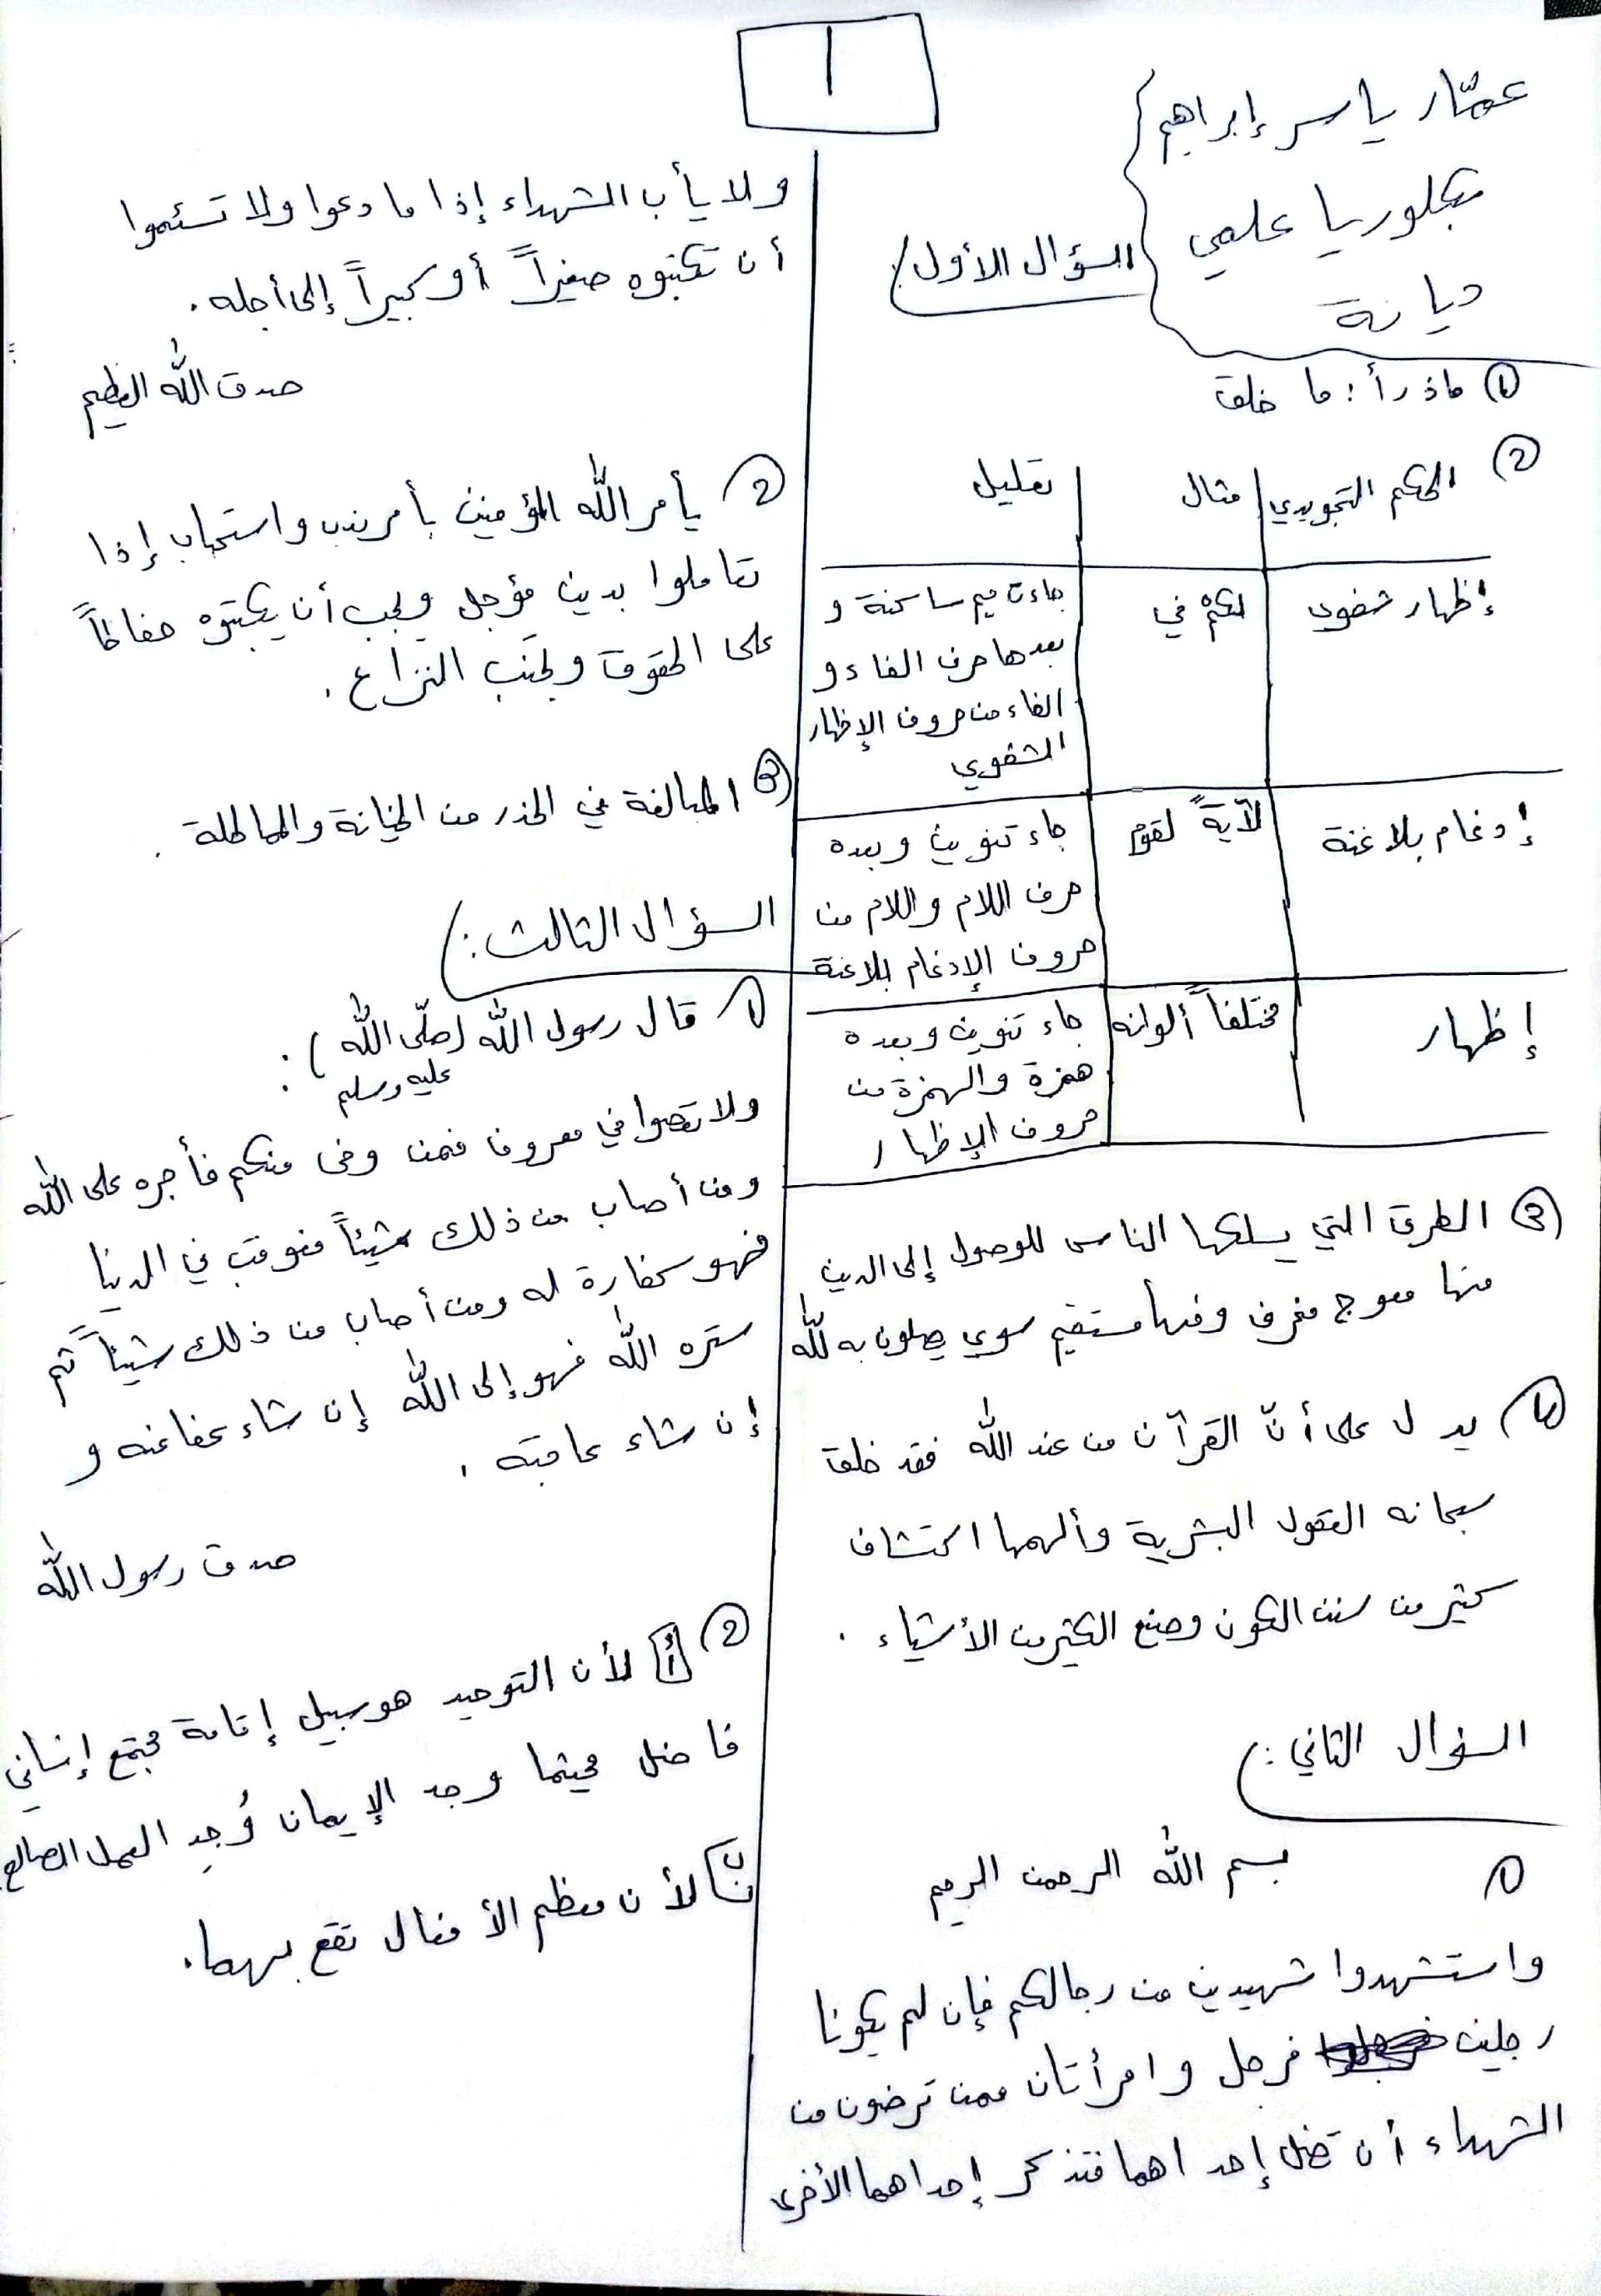 1
عمّار ياسر إبراهيم
بكلوريا علمي
ديانة
السؤال الأول)
1 ماذرأ: ما خلق
2 الحكم التجويدي | مثال | تعليل
إظهار شفوي | لكمْ في | جاءت ميم ساكنة و
بعدها حرف الفاء و
الفاء من حروف الإظهار
الشفوي
إدغام بلا غنة | لآيةً لقوم | جاء تنوين وبعده
حرف اللام واللام من
حروف الإدغام بلا غنة
إظهار | مختلفاً ألوانه | جاء تنوين وبعده
همزة والهمزة من
حروف الإظهار
3 الطرق التي يسلكها الناس للوصول إلى الدين
منها معوج منحرف ومنها مستقيم سوي يصلون به لله
4 يدل على أنّ القرآن من عند الله فقد خلق
سبحانه العقول البشرية وألهمها اكتشاف
كثير من سنن الكون وصنع الكثير من الأشياء.
السؤال الثاني:)
1 بسم الله الرحمن الرحيم
واستشهدوا شهيدين من رجالكم فإن لم يكونا
رجلين فرجل وامرأتان ممن ترضون من
الشهداء أن تضل إحداهما فتذكر إحداهما الأخرى
ولا يأب الشهداء إذا ما دعوا ولا تسئموا
أن تكتبوه صغيراً أو كبيراً إلى أجله.
صدق الله العظيم
2 يأمر الله المؤمنين بأمر ندب واستحباب إذا
تعاملوا بدين مؤجل وجب أن يكتبوه حفاظاً
على الحقوق وتجنّب النزاع.
3 المبالغة في الحذر من الخيانة والمماطلة.
السؤال الثالث:)
1 قال رسول الله (صلّى الله
عليه وسلم):
ولا تعصوا في معروف فمن وفى منكم فأجره على الله
ومن أصاب من ذلك شيئاً فعوقب في الدنيا
فهو كفارة له ومن أصاب من ذلك شيئاً ثم
ستره الله فهو إلى الله إن شاء عفا عنه و
إن شاء عاقبه.
صدق رسول الله
2 أ لأن التوحيد هو سبيل إقامة مجتمع إنساني
فاضل فحيثما وجد الإيمان وُجِد العمل الصالح.
ب لأن معظم الأفعال تقع بهما.